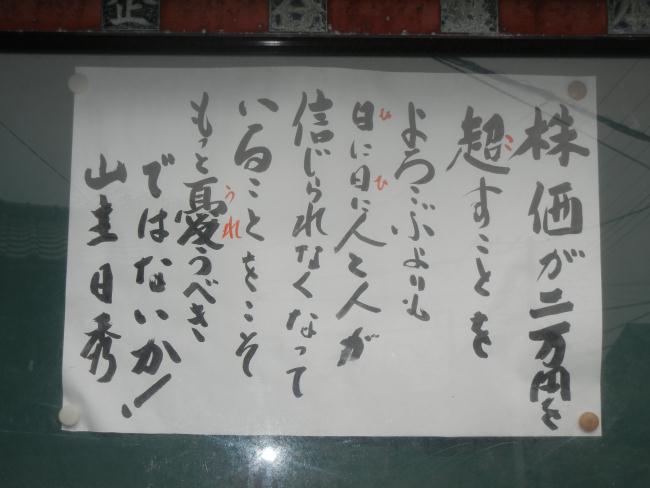 株価が二万円を
超すことを
よろこぶよりも
日に日に人と人が
信じられなくなって
いることをこそ
もっと憂うべき
ではないか!
山主日秀